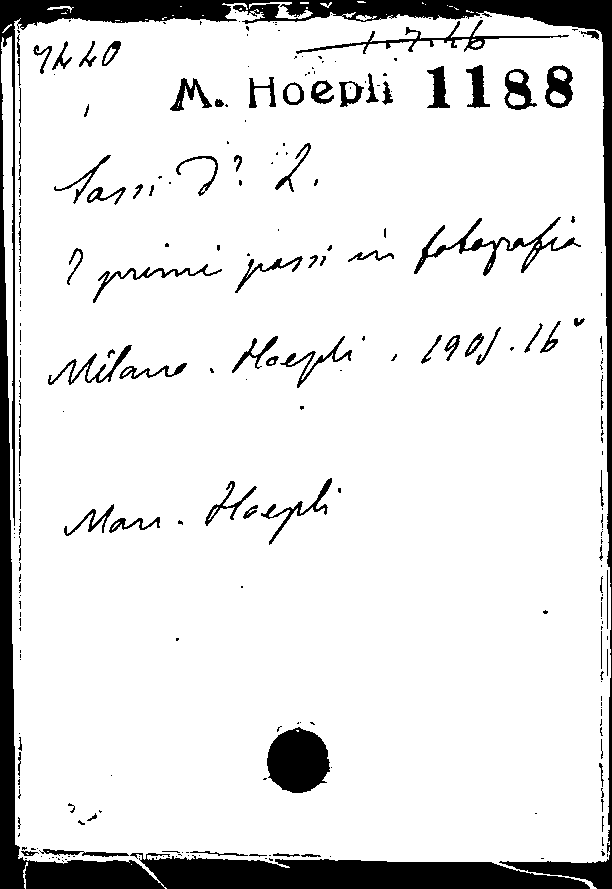 7440
1.7.46
M. Hoepli 1188
Sassi D.r L.
I primi passi in fotografia
Milano. Hoepli. 1905. 16°
Man. Hoepli